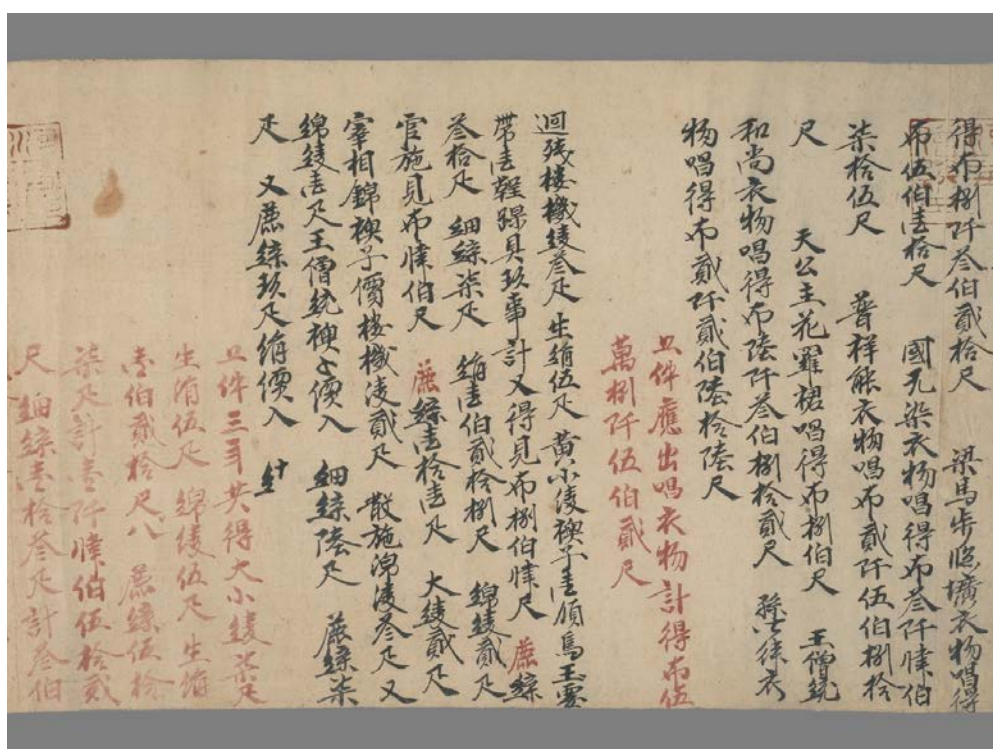 得布捌阡叁伯貳拾尺 梁馬步臨壙衣物唱得
布伍伯壹拾尺 國无染衣物唱得布叁阡肆伯
柒拾伍尺 普祥能衣物唱布貳阡伍伯捌拾
尺 天公主花羅裙唱得布捌伯尺 王僧統
和尚衣物唱得布陸阡叁伯捌拾貳尺 孫法律衣
物唱得布貳阡貳伯陸拾陸尺
上件應出唱衣物計得布伍
萬捌阡伍伯貳尺
迴殘樓機綾叁疋 生絹伍疋 黃小綾襖子壹領 烏玉要
帶壹鞓踝具玖事計又得見布捌伯肆尺 麁緤
叁拾疋 細緤柒疋 絹壹伯貳拾捌尺 綿綾貳疋
官施見布肆伯尺 麁緤壹拾壹疋 大綾貳疋
宰相錦襖子價樓機綾貳疋 散施綿綾叁疋又
綿綾壹疋王僧統襖子價入 細緤陸疋 麁緤柒
疋 又麁緤玖疋絹價入 計
上件三年共得大小綾柒疋
生絹伍疋 綿綾伍疋 生絹
壹伯貳拾尺八 麁緤伍拾
柒疋計壹阡肆伯伍拾貳
尺 細緤壹拾叁疋計叁伯